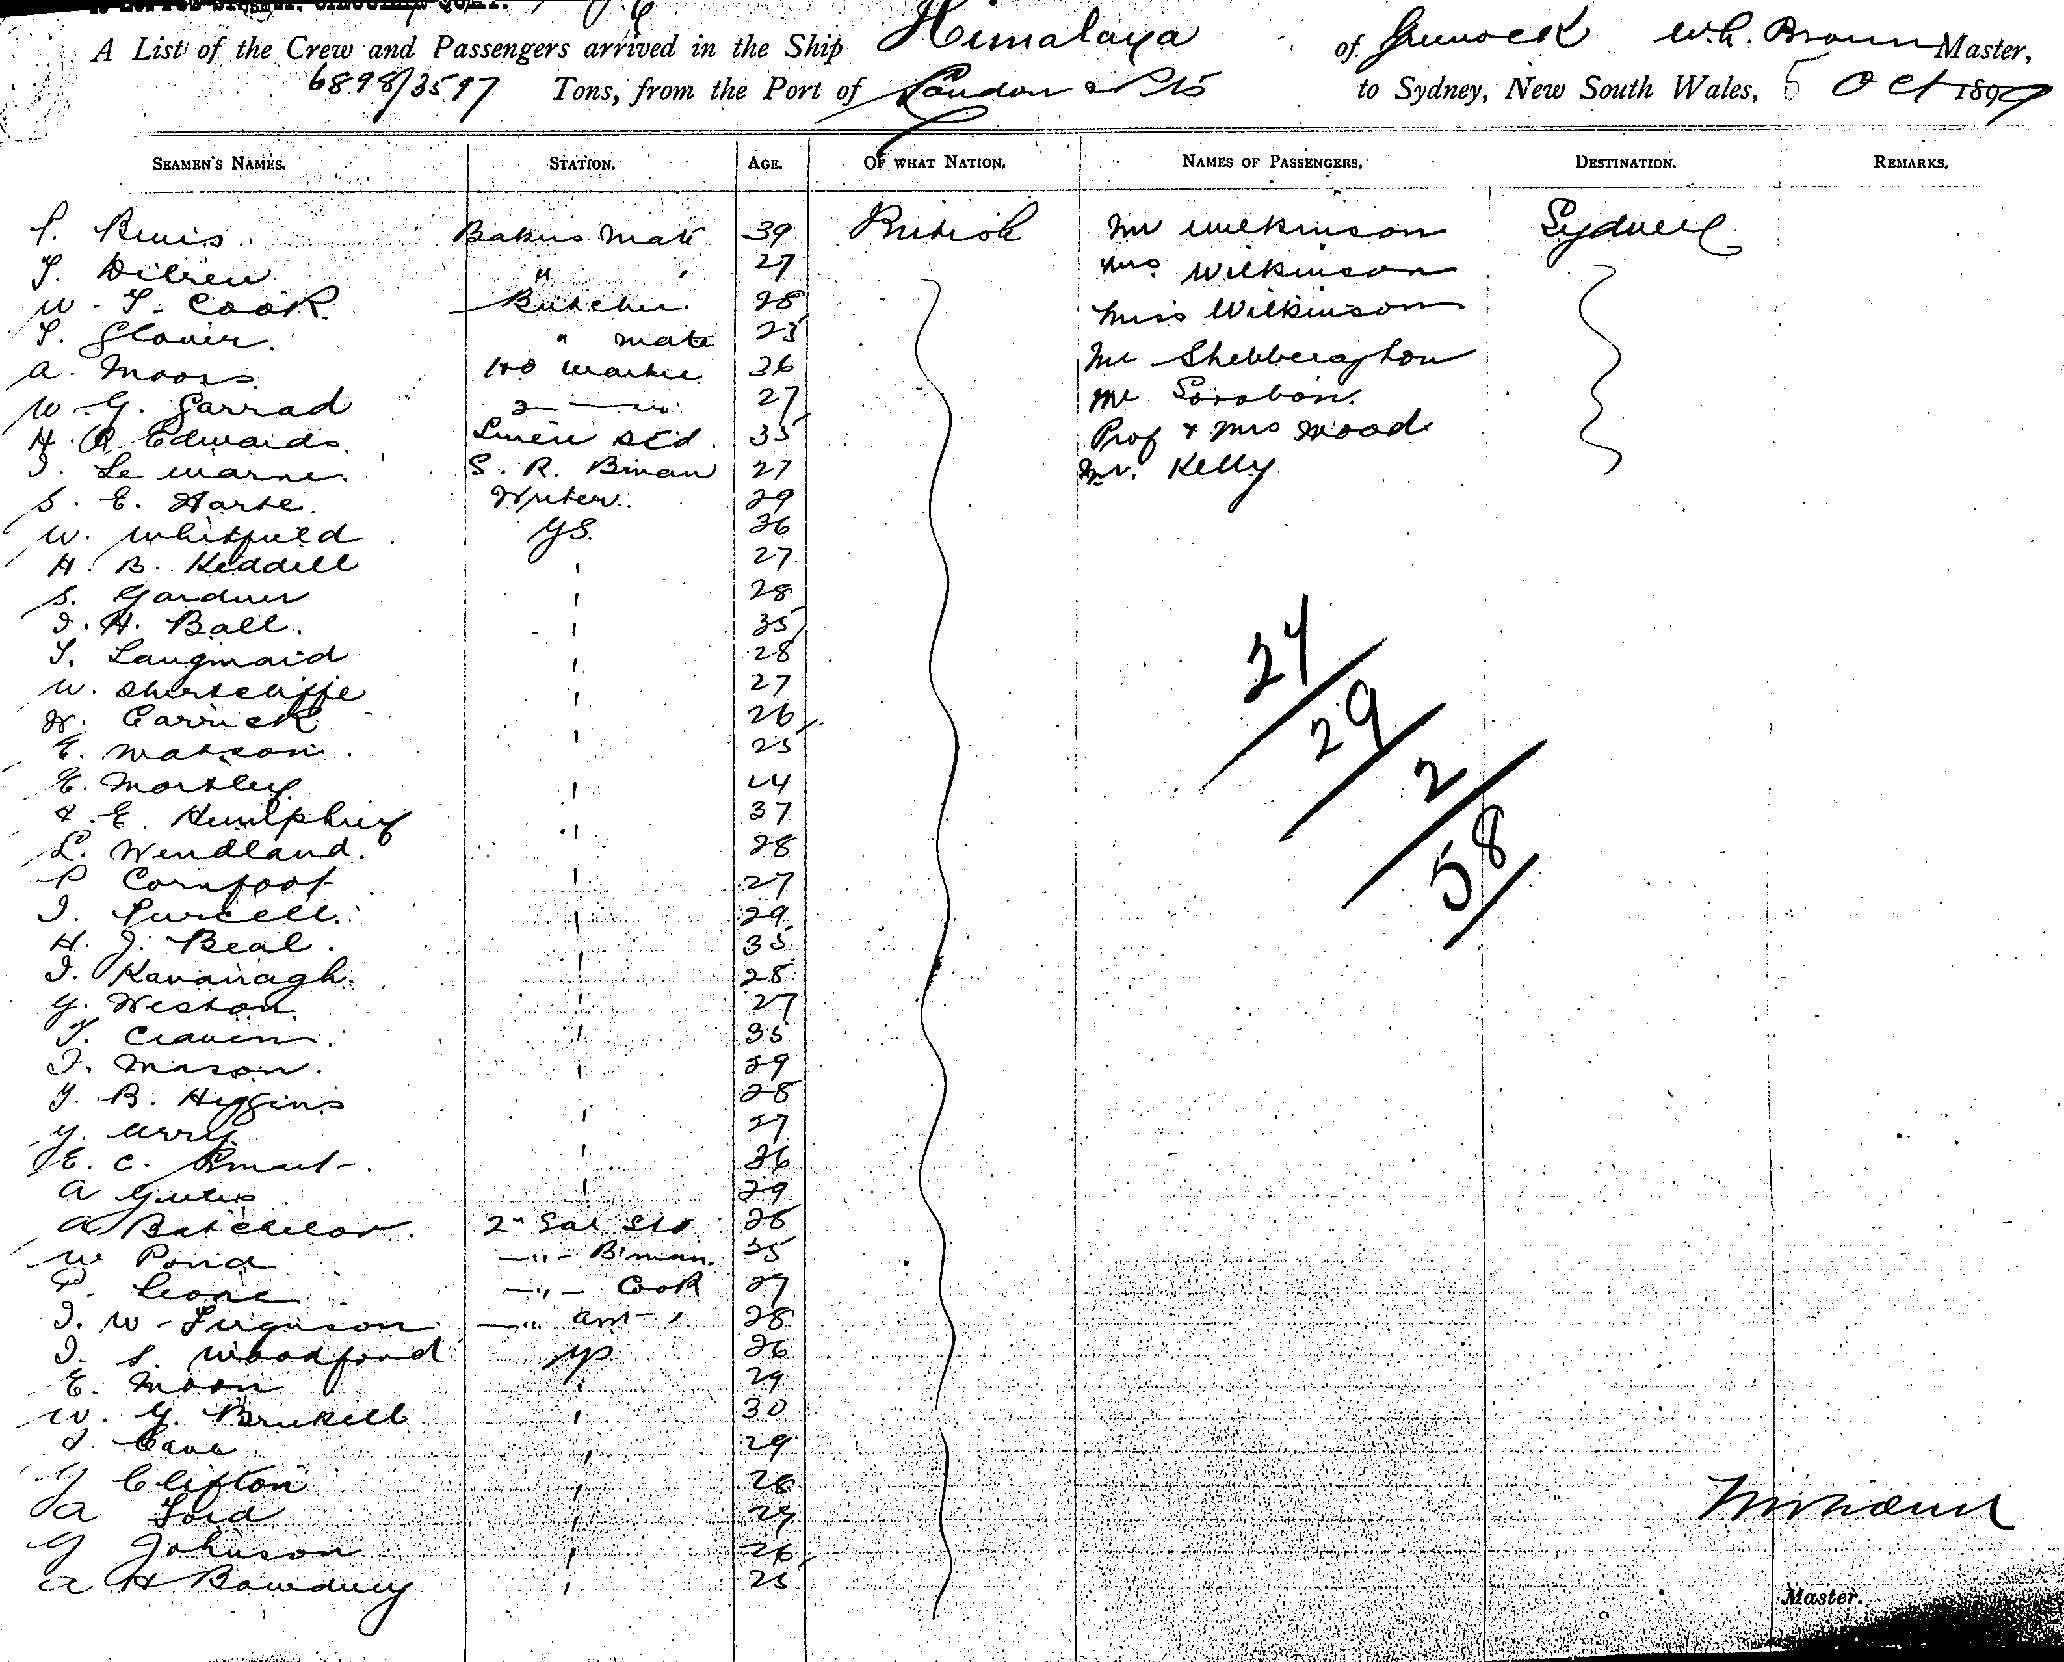 A List of the Crew and Passengers arrived in the Ship Himalaya of Greenock W.L. Brown Master,
6898/3597 Tons, from the Port of London & Pts to Sydney, New South Wales, 5 Oct 1899
SEAMEN'S NAMES. STATION. AGE. OF WHAT NATION. NAMES OF PASSENGERS. DESTINATION. REMARKS.
Bakers Mate 39 British Mr Wilkinson Sydney
" " 27 Mrs Wilkinson
W. T. Cook Butcher 28 Miss Wilkinson
T. Glover. " mate 25
A. Moors 36 Mr
W. G. Garrad 27 Mr
H. R Edwards. Linen 35 Prof & Mrs Wood
Le Warne. S. R. Bman 27 Mr. Kelly
S. E. Harte. Writer. 29
W. Whitfield GS. 26
H. B. Keddell ' 27
S. Gardner ' 28
J. H. Ball. ' 35
T. Langmaid ' 28
W. Shirtcliffe ' 27
H. Carrick ' 26
E. Watson. ' 25
E. Mortley. ' 24
E. Humphrey ' 37
L. Wendland. ' 28
P Cornfoot ' 27
J. Purcell. ' 29
H. J. Beal. ' 35
J. Kavanagh. ' 28
G. Weston. ' 27
T. Craven. ' 35
J. Mason. ' 29
G. B. Higgins ' 28
G. Arry ' 27
E. C. Smart. ' 26
A Giles ' 29
A Batchelor. 2nd Sal Std 26
W Pond —"— B'man. 25
P. Leone —"— Cook 27
J. W. Ferguson —"— 28
J. S. Woodford GP 26
E. Moon ' 29
W. G. Brukell ' 30
Cave ' 29
J Clifton ' 26
A Ford ' 27
G Johnson ' 26
A H Bowdrey ' 25
24/29/2/58
Master.